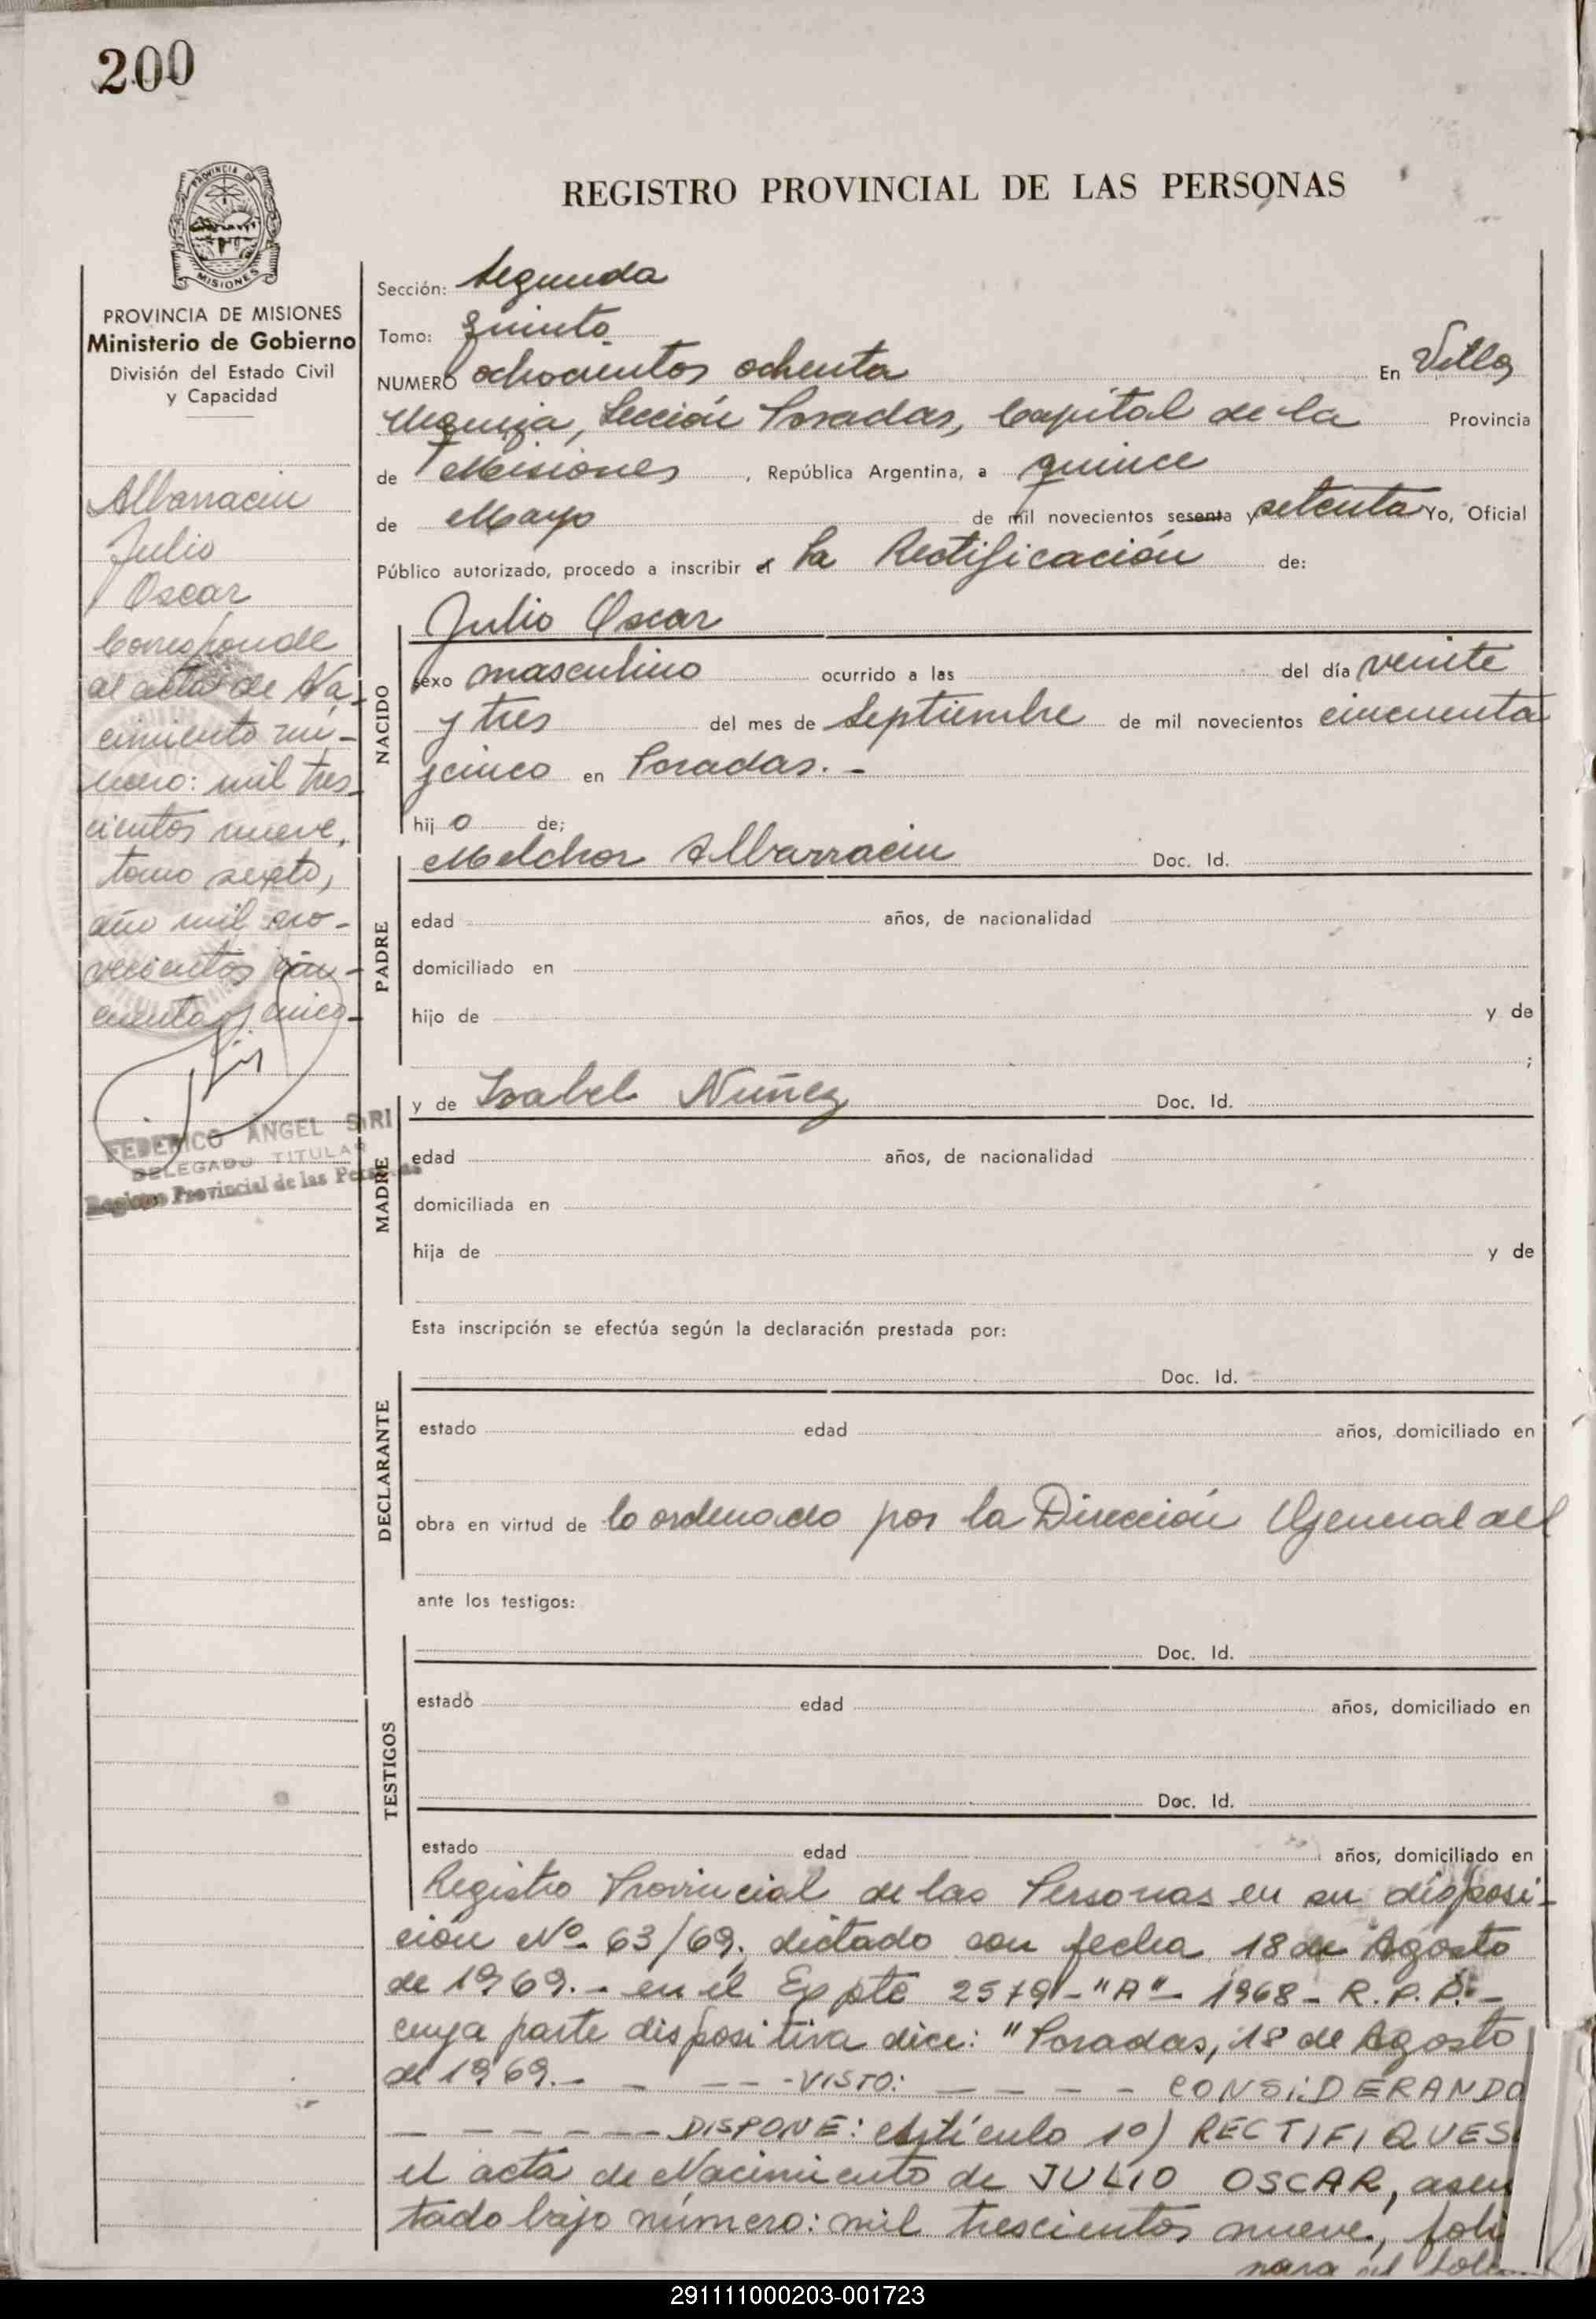 200
PROVINCIA DE
MISIONES
REGISTRO PROVINCIAL DE LAS PERSONAS
PROVINCIA DE MISIONES
Ministerio de Gobierno
División del Estado Civil
y Capacidad
Albarracin
Julio
Oscar
Corresponde
al acta de Na-
cimiento nú-
mero: mil tres-
cientos nueve,
tomo sexto,
año mil no-
vecientos cin-
cuenta y cinco-
FEDERICO ANGEL SIRI
DELEGADO TITULAR
Registro Provincial de las Personas
Sección: Segunda
Tomo: Quinto
NUMERO ochocientos ochenta En Villa
Urquiza, Sección Posadas, Capital de la Provincia
de Misiones, República Argentina, a quince
de Mayo de mil novecientos sesenta y setenta Yo, Oficial
Público autorizado, procedo a inscribir el la Rectificación de:
Julio Oscar
NACIDO
sexo masculino ocurrido a las del día veinte
y tres del mes de Septiembre de mil novecientos cincuenta
y cinco en Posadas.-
hij o de;
PADRE
Melchor Albarracin Doc. Id.
edad años, de nacionalidad
domiciliado en
hijo de y de
;
MADRE
y de Isabel Nuñez Doc. Id.
edad años, de nacionalidad
domiciliada en
hija de y de
Esta inscripción se efectúa según la declaración prestada por:
DECLARANTE
Doc. Id.
estado edad años, domiciliado en
obra en virtud de lo ordenado por la Dirección General del
ante los testigos:
TESTIGOS
Doc. Id.
estado edad años, domiciliado en
Doc. Id.
estado edad años, domiciliado en
Registro Provincial de las Personas en su disposi-
ción Nº 63/69, dictado con fecha 18 de Agosto
de 1969.- en el Expte 2579-"A"- 1968- R.P.P.-
cuya parte dispositiva dice: "Posadas, 18 de Agosto
de 1969.- - - - -VISTO: - - - - CONSIDERANDO
- - - - - - - DISPONE: Artículo 1º) RECTIFIQUES
el acta de Nacimiento de JULIO OSCAR, asen
tado bajo número: mil trescientos nueve, foli
291111000203-001723